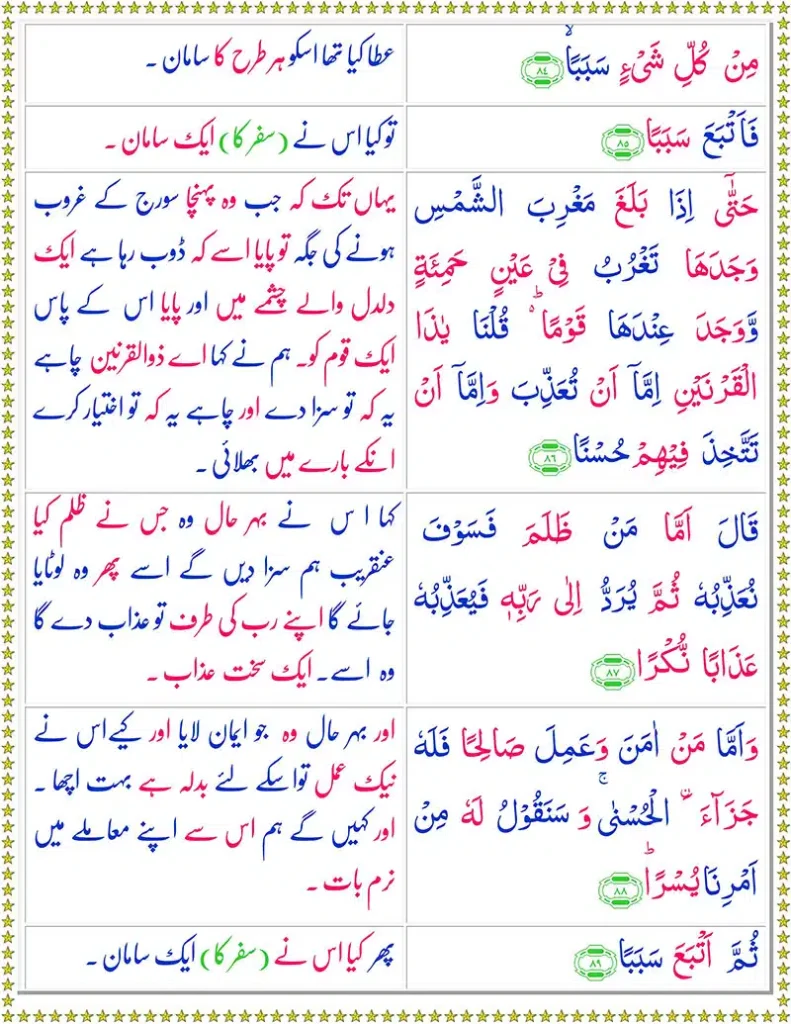 مِنۡ كُلِّ شَىۡءٍ سَبَبًاۙ ﴿٨٤﴾
عطا کیا تھا اسکو ہر طرح کا سامان ۔
فَاَتۡبَعَ سَبَبًا ﴿٨٥﴾
تو کیا اس نے (سفر کا) ایک سامان ۔
حَتّٰٓى اِذَا بَلَغَ مَغۡرِبَ الشَّمۡسِ
وَجَدَهَا تَغۡرُبُ فِىۡ عَيۡنٍ حَمِئَةٍ
وَّوَجَدَ عِنۡدَهَا قَوۡمًا ؕ قُلۡنَا يٰذَا
الۡقَرۡنَيۡنِ اِمَّاۤ اَنۡ تُعَذِّبَ وَاِمَّاۤ اَنۡ
تَتَّخِذَ فِيۡهِمۡ حُسۡنًا ﴿٨٦﴾
یہاں تک کہ جب وہ پہنچا سورج کے غروب
ہونے کی جگہ تو پایا اسے کہ ڈوب رہا ہے ایک
دلدل والے چشمے میں اور پایا اس کے پاس
ایک قوم کو۔ ہم نے کہا اے ذوالقرنین چاہے
یہ کہ تو سزا دے اور چاہے یہ کہ تو اختیار کرے
انکے بارے میں بھلائی ۔
قَالَ اَمَّا مَنۡ ظَلَمَ فَسَوۡفَ
نُعَذِّبُهٗ ثُمَّ يُرَدُّ اِلٰى رَبِّهٖ فَيُعَذِّبُهٗ
عَذَابًا نُّكۡرًا ﴿٨٧﴾
کہا ا س نے بہر حال وہ جس نے ظلم کیا
عنقریب ہم سزا دیں گے اسے پھر وہ لوٹایا
جائے گا اپنے رب کی طرف تو عذاب دے گا
وہ اسے۔ ایک سخت عذاب ۔
وَاَمَّا مَنۡ اٰمَنَ وَعَمِلَ صَالِحًا فَلَهٗ
جَزَآءَ ۨالۡحُسۡنٰى‌ ۚ وَ سَنَقُوۡلُ لَهٗ مِنۡ
اَمۡرِنَا يُسۡرًا ؕ ﴿٨٨﴾
اور بہر حال وہ جو ایمان لایا اور کیے اس نے
نیک عمل تو اسکے لئے بدلہ ہے بہت اچھا ۔
اور کہیں گے ہم اس سے اپنے معاملے میں
نرم بات ۔
ثُمَّ اَتۡبَعَ سَبَبًا ﴿٨٩﴾
پھر کیا اس نے (سفر کا) ایک سامان ۔